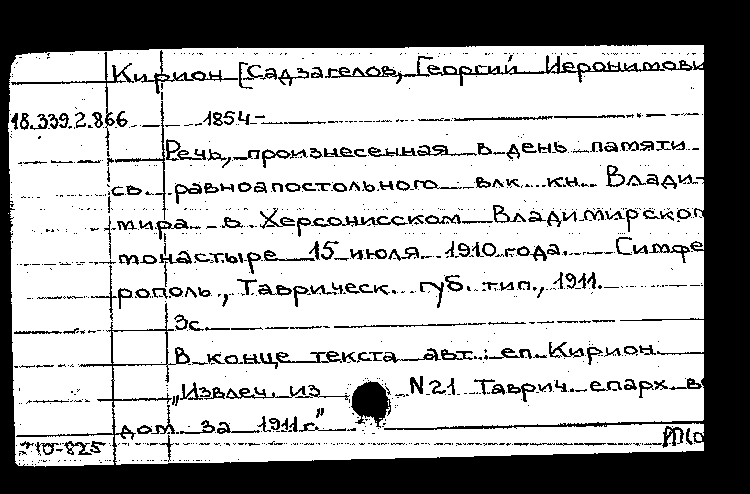 Кирион [Садзагелов, Георгий Иеронимови
18.339.2.866 1854-
Речь, произнесенная в день памяти
св. равноапостольного влк. кн. Влади-
мира в Херсонисском Владимирском
монастыре 15 июля 1910 года. Симфе
рополь, Таврическ. губ. тип., 1911.
3с.
В конце текста авт.: еп. Кирион.
"Извлеч. из N21 Таврич. епарх. ве
дом. за 1911 г."
10-825